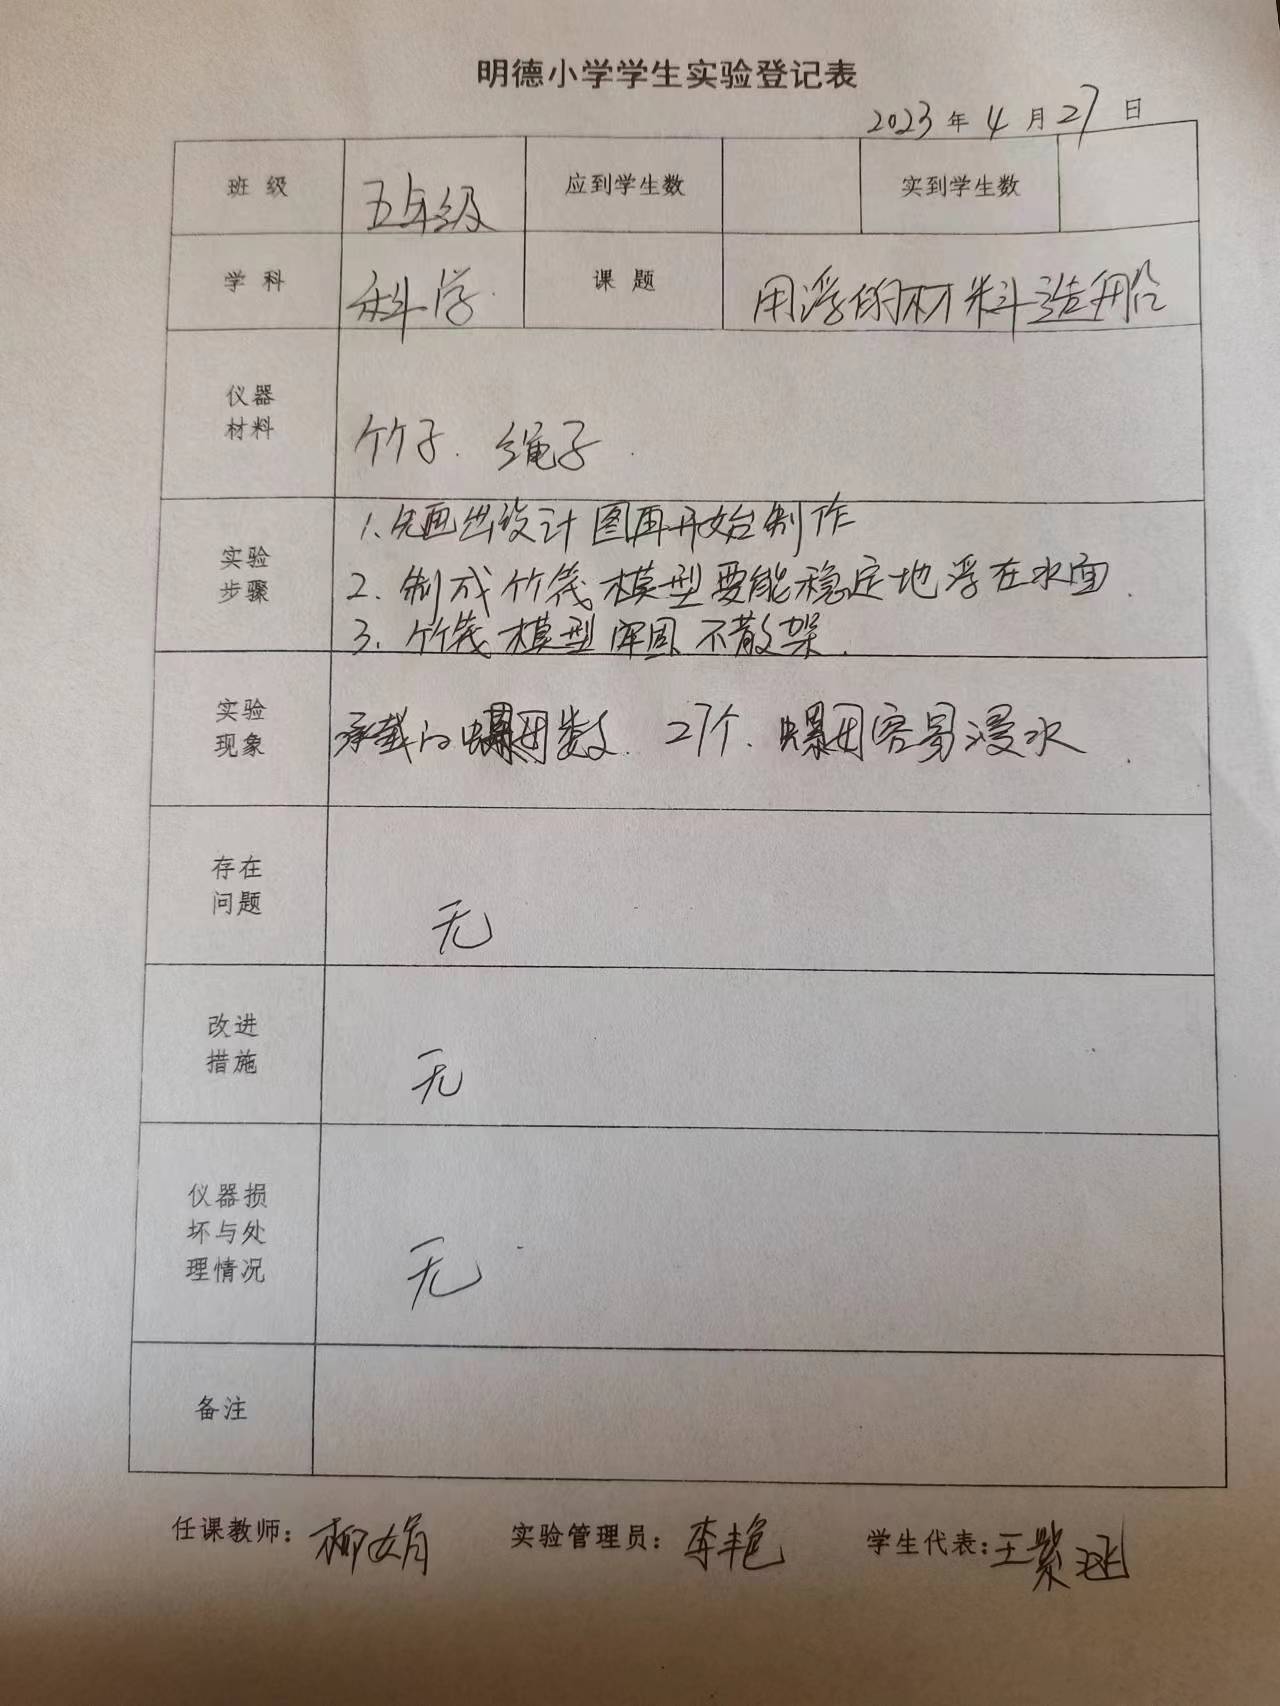 明德小学学生实验登记表
2023 年 4 月 27 日
班 级 五年级 应到学生数 实到学生数
学 科 科学 课 题 用浮的材料造船
仪器
材料
竹子. 绳子.
实验
步骤
1.先画出设计图再开始制作
2. 制成竹筏模型要能稳定地浮在水面.
3. 竹筏模型牢固不散架.
实验
现象
承载的螺母数. 27个. 螺母容易浸水.
存在
问题
无
改进
措施
无
仪器损
坏与处
理情况
无
备注
任课教师: 柳娟 实验管理员: 李艳 学生代表: 王紫涵